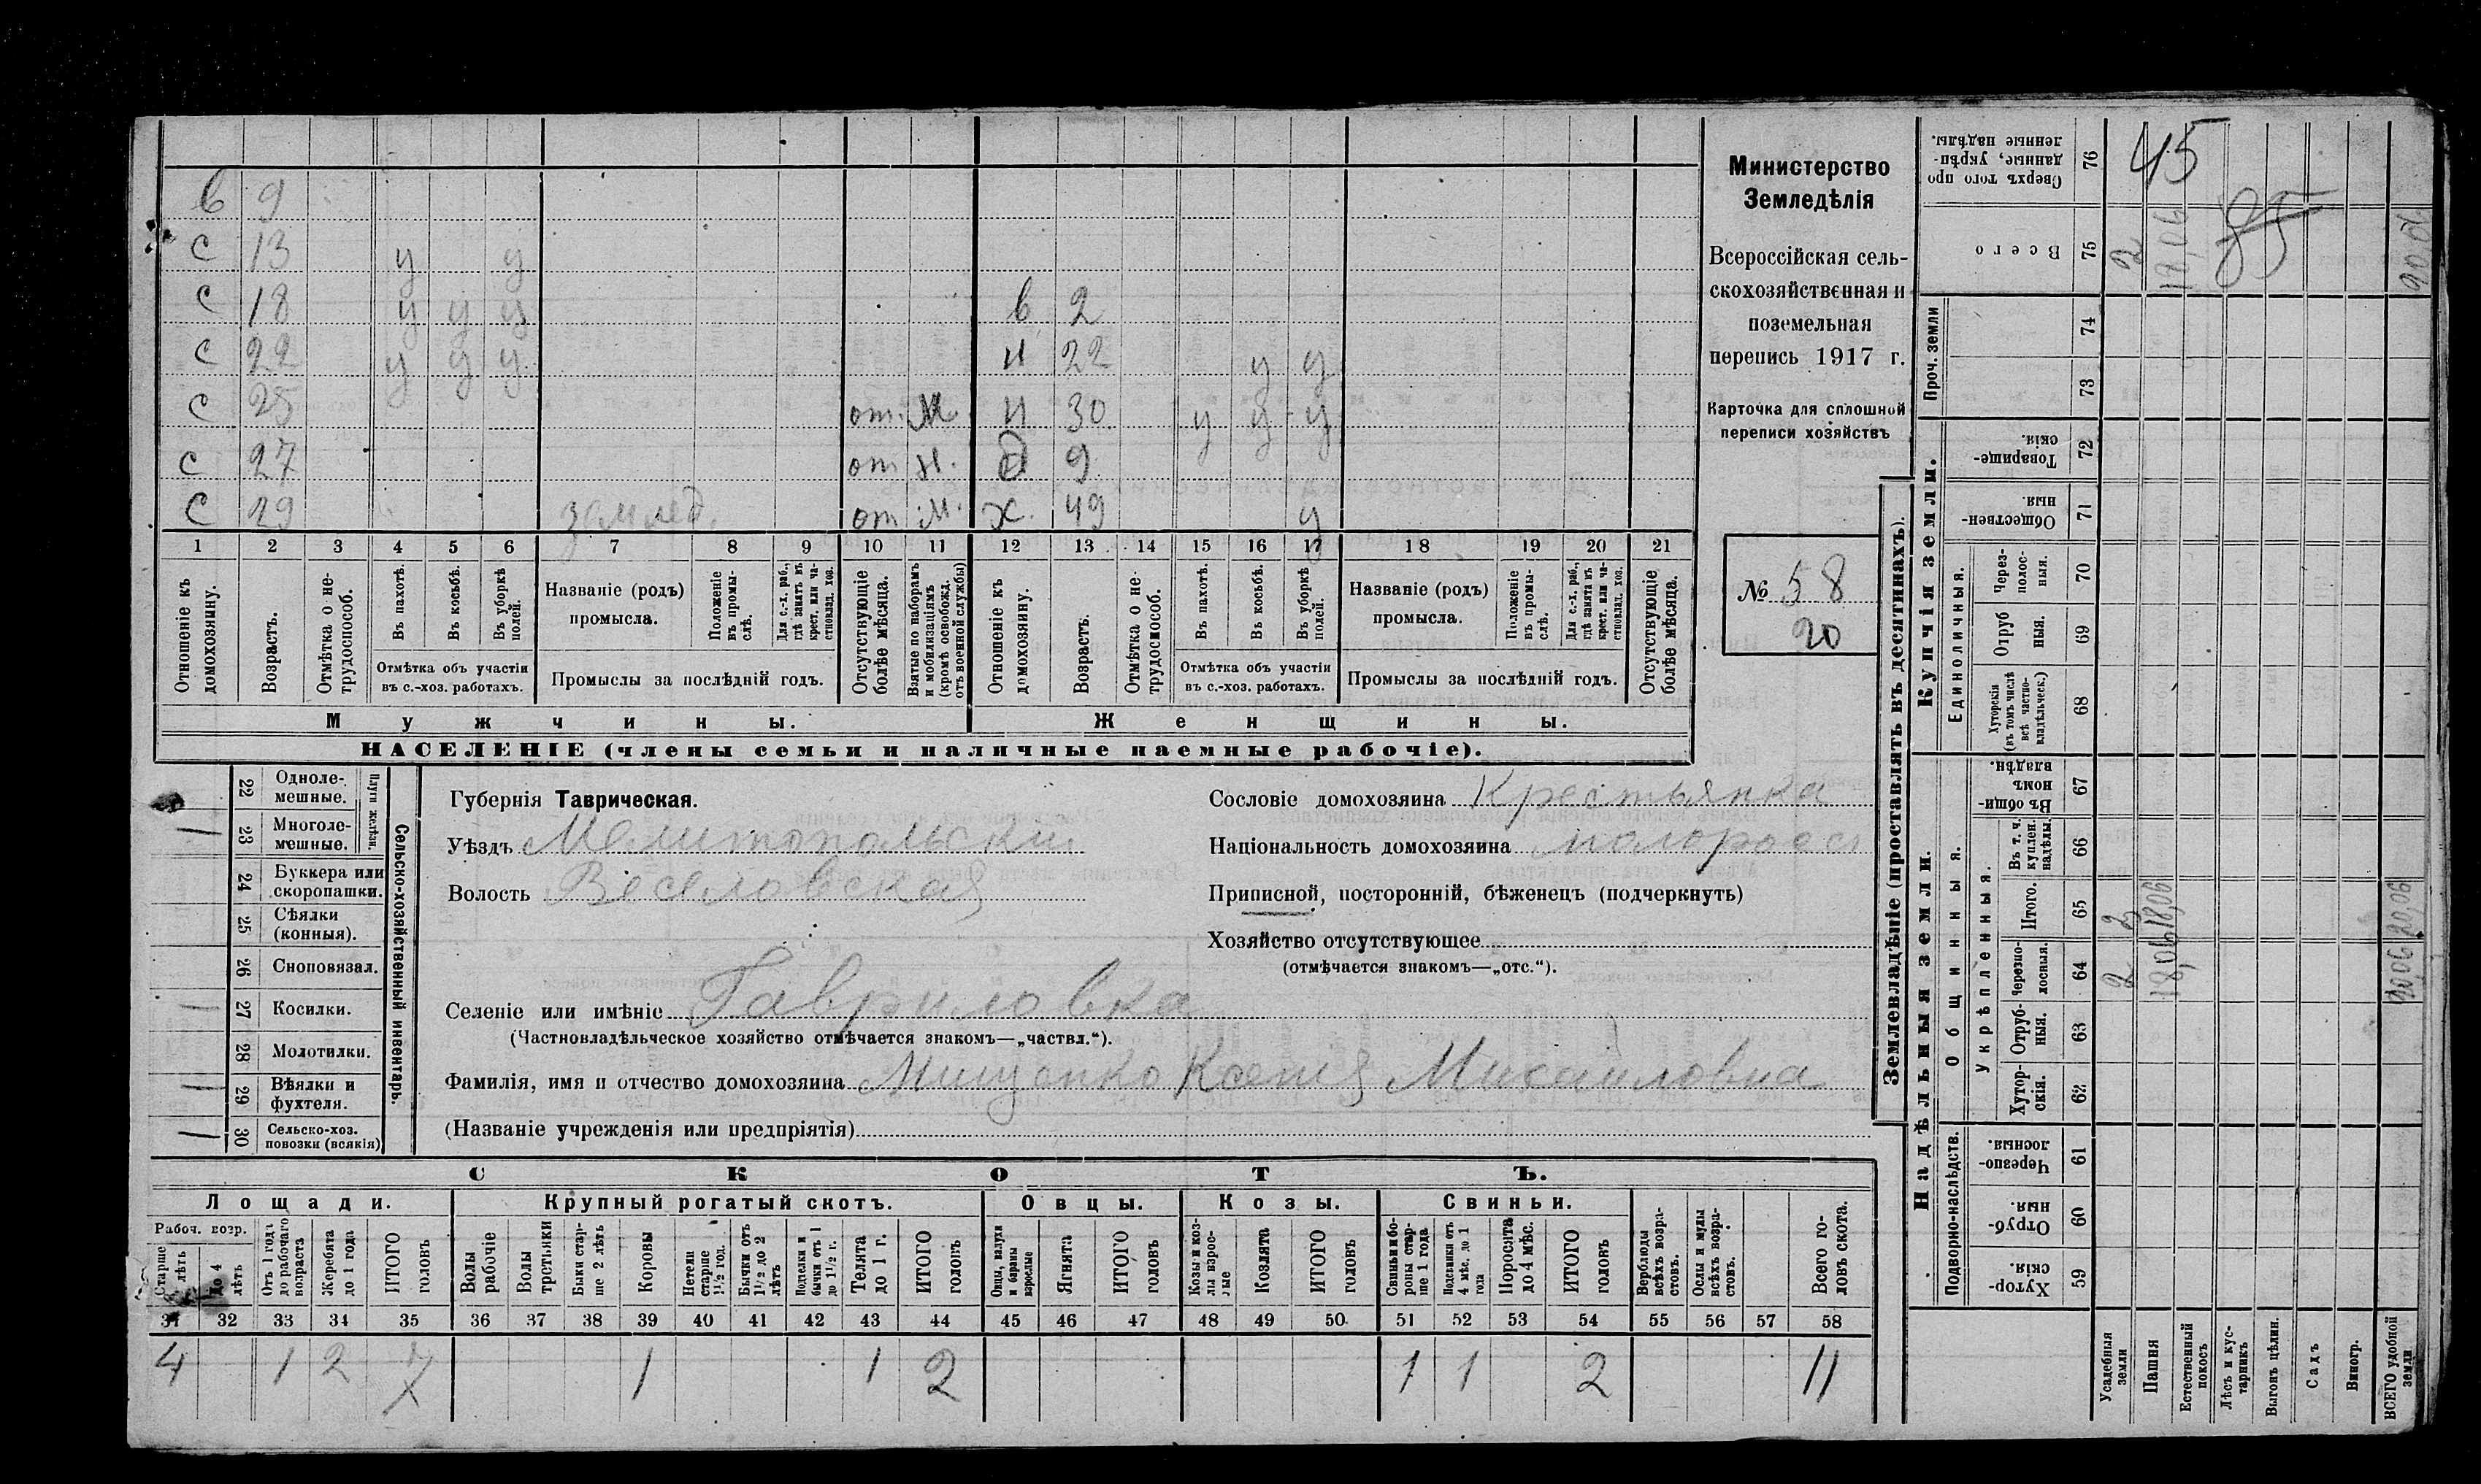 в 9
с 13 у у
с 18 у у у в 2
с 22 у у у н 22 у у
с 25 от. М н 30 у у у
с 27 от М. д 9
с 29 землед. от М. х. 49 у
1 2 3 4 5 6 7 8 9 10 11 12 13 14 15 16 17 18 19 20 21
Отношеніе къ домохозяину.
Возрастъ.
Отмѣтка о не-трудоспособ.
Въ пахотѣ.
Въ косьбѣ.
Въ уборкѣ полей.
Отмѣтка объ участіи
въ с.-хоз. работахъ.
Названіе (родъ)
промысла.
Положеніе въ промы-слѣ.
Для с.-х. раб., гдѣ занятъ въ крест. или ча-стновлад. хоз.
Промыслы за послѣдній годъ.
Отсутствующіе болѣе мѣсяца.
Взятые по наборамъ и мобилизаціямъ (кромѣ освобожд. отъ военной службы)
Отношеніе къ домохозяину.
Возрастъ.
Отмѣтка о не-трудоспособ.
Въ пахотѣ.
Въ косьбѣ.
Въ уборкѣ полей.
Отмѣтка объ участіи
въ с.-хоз. работахъ.
Названіе (родъ)
промысла.
Положеніе въ промы-слѣ.
Для с.-х. раб., гдѣ занята въ крест. или ча-стновлад. хоз.
Промыслы за послѣдній годъ.
Отсутствующіе болѣе мѣсяца.
Мужчины.
Женщины.
НАСЕЛЕНІЕ (члены семьи и наличные наемные рабочіе).
Министерство
Земледѣлія
Всероссійская сель-
скохозяйственная и
поземельная
перепись 1917 г.
Карточка для сплошной
переписи хозяйствъ
№ 58
20
Сельско-хозяйственный инвентарь.
Плуги желѣзн.
22 Одноле-мешные.
23 Многоле-мешные.
24 Буккера или скоропашки.
25 Сѣялки (конныя).
26 Сноповязал.
27 Косилки.
28 Молотилки.
29 Вѣялки и фухтеля.
30 Сельско-хоз. повозки (всякія)
Губернія Таврическая.
Уѣздъ Мелитопольскій
Волость Веселовская
Селеніе или имѣніе Гавриловка
(Частновладѣльческое хозяйство отмѣчается знакомъ—„частвл.“).
Фамилія, имя и отчество домохозяина Мищенко Ксенія Михайловна
(Названіе учрежденія или предпріятія)
Сословіе домохозяина Крестьянка
Національность домохозяина малоросс
Приписной, посторонній, бѣженецъ (подчеркнуть)
Хозяйство отсутствующее
(отмѣчается знакомъ—„отс.“).
СКОТЪ.
Лошади.
Крупный рогатый скотъ.
Овцы.
Козы.
Свиньи.
Рабоч. возр.
Старше 4 лѣтъ
До 4 лѣтъ
Отъ 1 года до рабочаго возраста
Жеребята до 1 года
ИТОГО головъ
Волы рабочіе
Волы третьяки
Быки стар-ше 2 лѣтъ
Коровы
Нетели старше 1½ год.
Бычки отъ 1½ до 2 лѣтъ
Подтелки и бычки отъ 1 до 1½ г.
Телята до 1 г.
ИТОГО головъ
Овцы, валухи и бараны взрослые
Ягнята
ИТОГО головъ
Козы и коз-лы взрос-лые
Козлята
ИТОГО головъ
Свиньи и бо-ровы стар-ше 1 года
Подсвинки отъ 4 мѣс. до 1 года
Поросята до 4 мѣс.
ИТОГО головъ
Верблюды всѣхъ возра-стовъ.
Ослы и мулы всѣхъ возра-стовъ.
Всего го-ловъ скота.
31 32 33 34 35 36 37 38 39 40 41 42 43 44 45 46 47 48 49 50 51 52 53 54 55 56 57 58
4 1 2 7 1 1 2 1 1 2 11
Землевладѣніе (проставлять въ десятинахъ).
Купчія земли.
Надѣльныя земли.
Проч. земли
Единоличныя.
Общинныя.
Укрѣпленныя.
Подворно-наслѣдств.
Сверхъ того про-данные, укрѣп-ленные надѣлы. 76 45
Всего 75 2 18,06 20,06
85
74
73
Товарище-скія. 72
Обществен-ныя. 71
Через-полос-ныя. 70
Отруб-ныя. 69
Хуторскія (въ томъ числѣ всѣ частно-владѣльческ.) 68
Въ общин-номъ владѣн. 67
Въ т. ч. куплен. надѣлы. 66
Итого. 65 2 18,06 20,06
Черезпо-лосныя. 64 2 18,06 20,06
Отруб-ныя. 63
Хутор-скія. 62
Черезпо-лосныя. 61
Отруб-ныя. 60
Хутор-скія. 59
Усадебныя земли
Пашня
Естественный покосъ
Лѣсъ и кус-тарникъ
Выгонъ цѣлин.
Садъ
Виногр.
ВСЕГО удобной земли